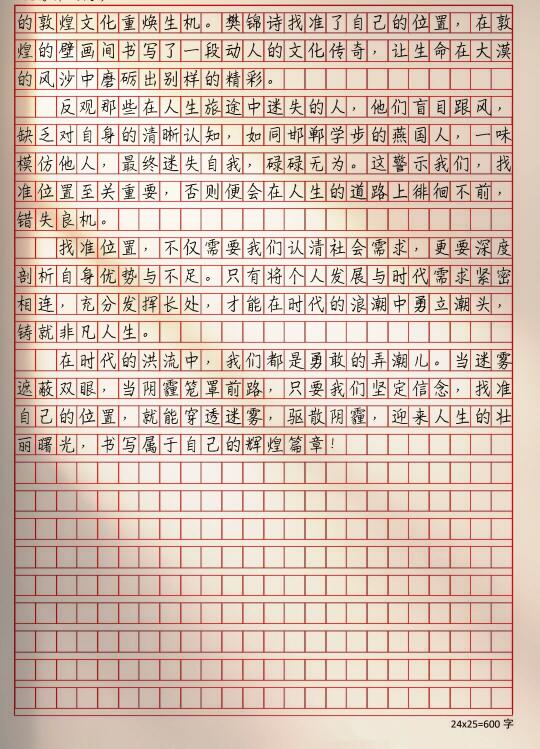 的敦煌文化重焕生机。樊锦诗找准了自己的位置，在敦
煌的壁画间书写了一段动人的文化传奇，让生命在大漠
的风沙中磨砺出别样的精彩。
反观那些在人生旅途中迷失的人，他们盲目跟风，
缺乏对自身的清晰认知，如同邯郸学步的燕国人，一味
模仿他人，最终迷失自我，碌碌无为。这警示我们，找
准位置至关重要，否则便会在人生的道路上徘徊不前，
错失良机。
找准位置，不仅需要我们认清社会需求，更要深度
剖析自身优势与不足。只有将个人发展与时代需求紧密
相连，充分发挥长处，才能在时代的浪潮中勇立潮头，
铸就非凡人生。
在时代的洪流中，我们都是勇敢的弄潮儿。当迷雾
遮蔽双眼，当阴霾笼罩前路，只要我们坚定信念，找准
自己的位置，就能穿透迷雾，驱散阴霾，迎来人生的壮
丽曙光，书写属于自己的辉煌篇章！
24x25=600 字